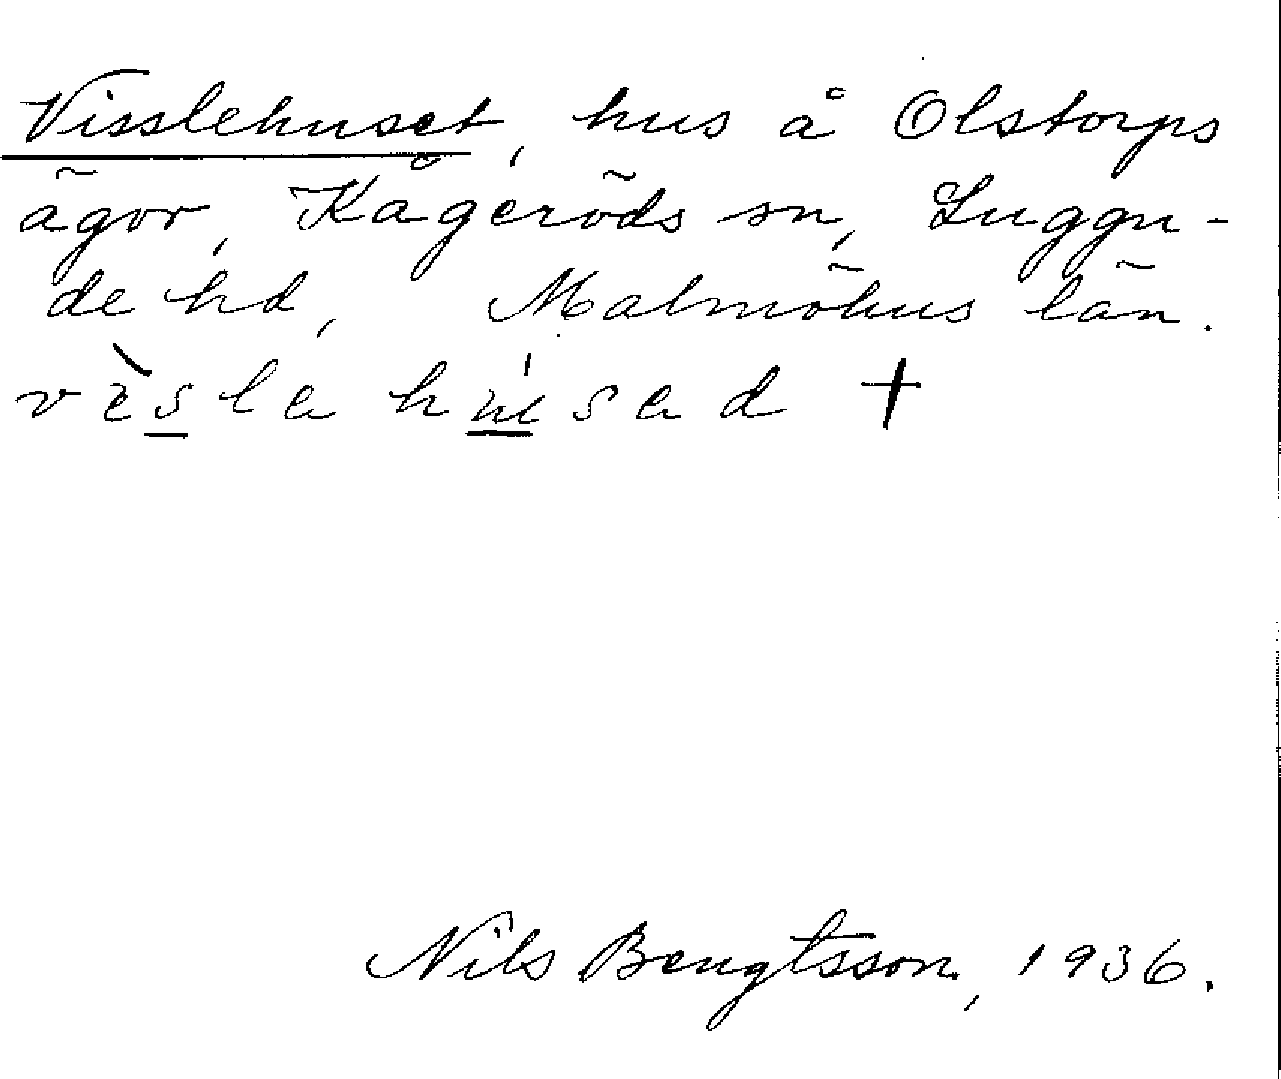 Visslehuset, hus å Olstorps
ägor, Kågeröds sn, Luggu-
de hd, Malmöhus län.
vèsle húsed +
Nils Bengtsson, 1936.